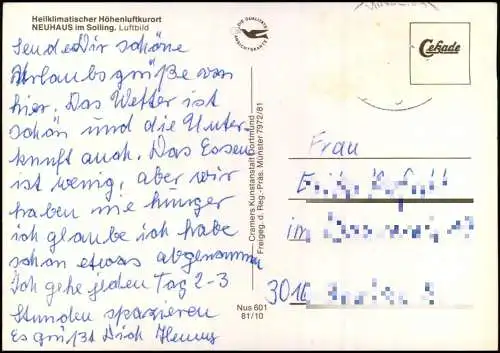 Heilklimatischer Höhenluftkurort
NEUHAUS im Solling. Luftbild
Sende Dir schöne
Urlaubsgrüße von
hier. Das Wetter ist
schön und die Unter
kunft auch. Das Essen
ist wenig, aber wir
haben nie hunger
ich glaube ich habe
schon etwas abgenommen
Ich gehe jeden Tag 2-3
Stunden spazieren
Es grüßt Dich Henny
DIE QUALITÄTS
ANSICHTSKARTE
Cramers Kunstanstalt Dortmund
Freigeg. d. Reg.-Präs. Münster 7972/81
Nus 601
81/10
Cekade
Frau
im